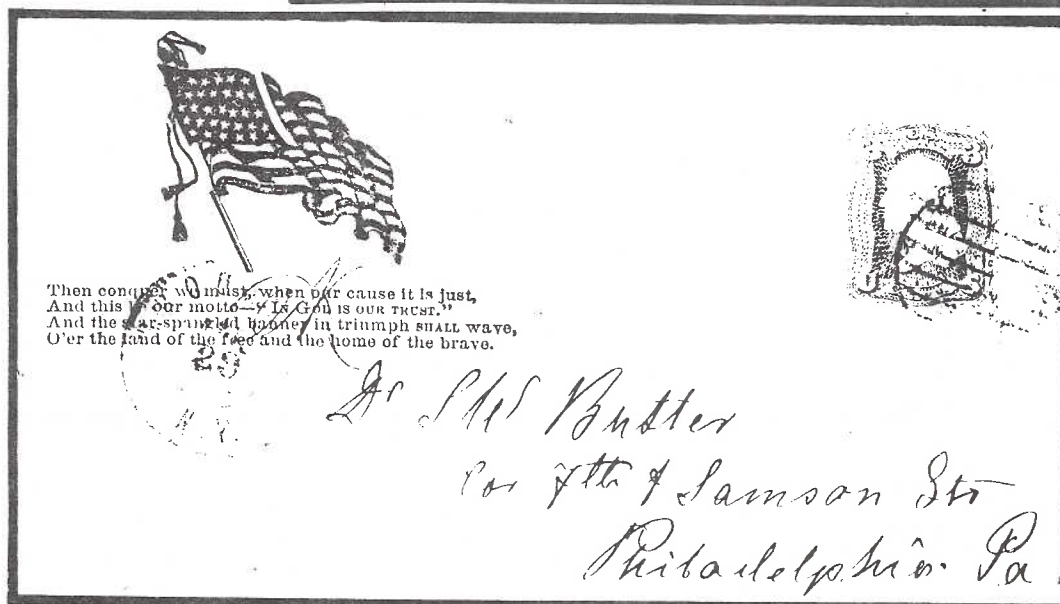 Then conquer we must, when our cause it is just,
And this be our motto—"IN GOD IS OUR TRUST."
And the star-spangled banner in triumph SHALL wave,
O'er the land of the free and the home of the brave.
Dr Butler
Cor 7th & Samson Sts
Philadelphia Pa